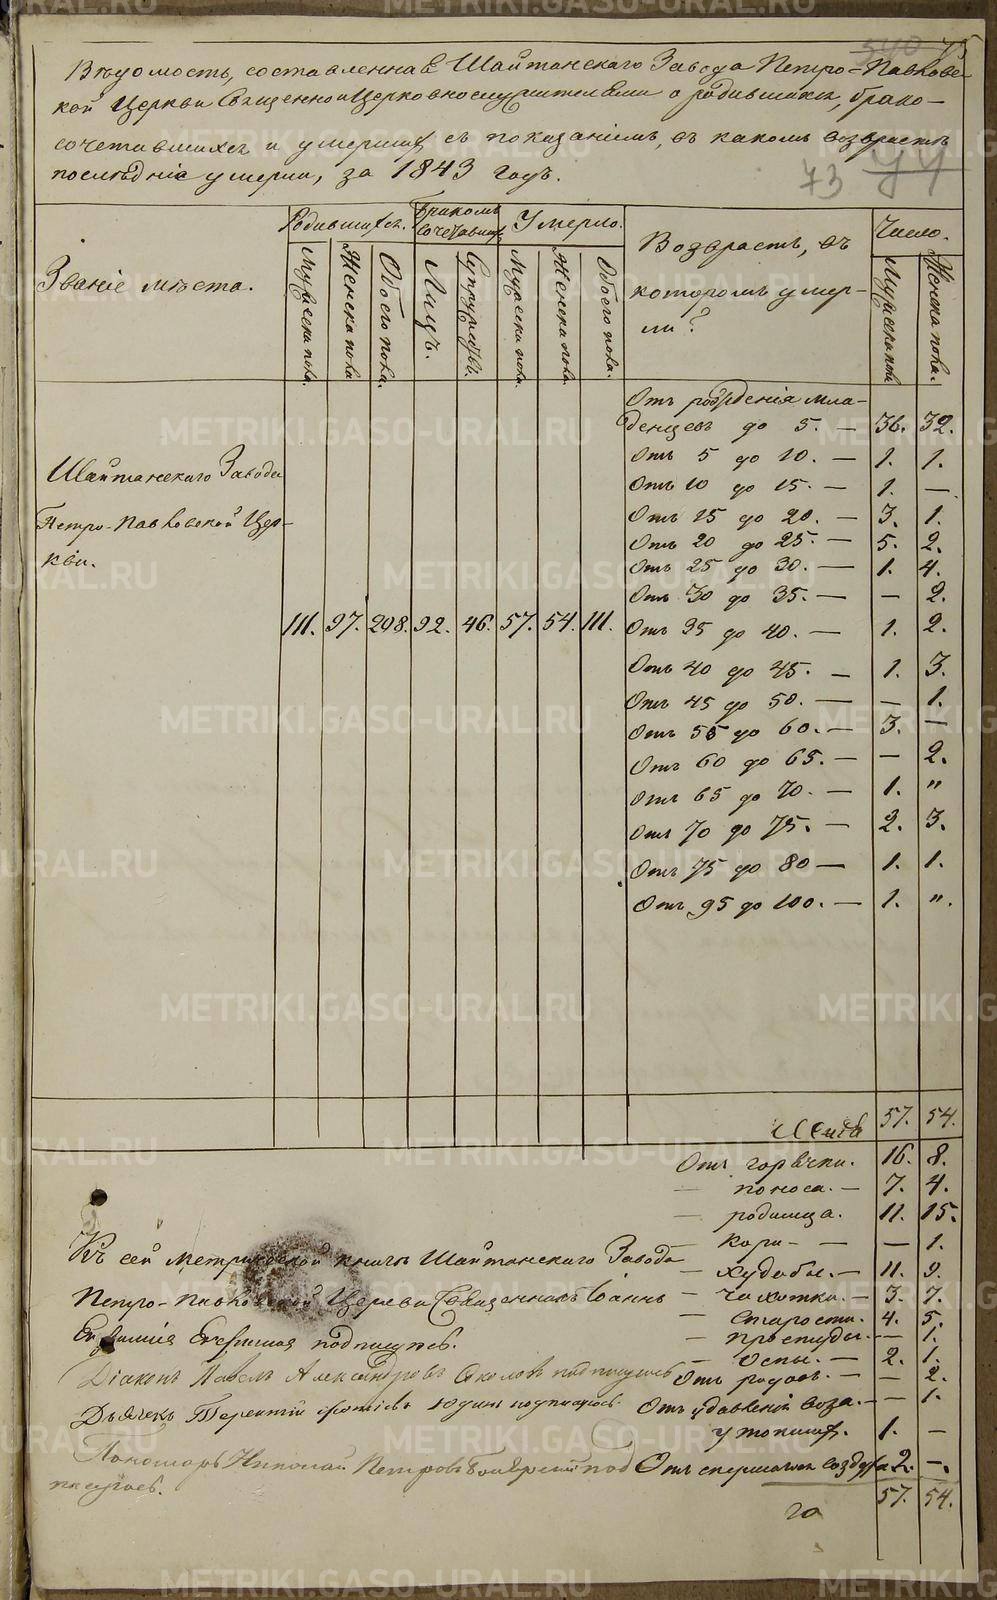 75
Вѣдомость, составленная Шайтанскаго Завода Петро=Павловс
кой Церкви Священноцерковнослужителями о родившихся, брако-
сочетавшихся и умершихъ съ показаніемъ, въ какомъ возврастѣ
послѣдніе умерли, за 1843 годъ.
73
Званіе мѣста.
Родившихся.
Бракомъ сочетавших
Умерло.
Возврастъ, въ
которомъ умер-
ли?
Число.
Мужеска пола.
Женска пола
Обоего пола.
Лицъ.
Супружествъ.
Мужеска пола.
Женска пола.
Обоего пола.
Мужеска пола
Женска пола.
Шайтанскаго Завода
Петро-Павловской Цер-
кви.
111. 97. 208. 92. 46. 57. 54. 111.
Отъ рожденія мла-
денцевъ до 5. — 36. 32.
Отъ 5 до 10. — 1. 1.
Отъ 10 до 15. — 1. —
Отъ 15 до 20. — 3. 1.
Отъ 20 до 25. — 5. 2.
Отъ 25 до 30. — 1. 4.
Отъ 30 до 35. — — 2.
Отъ 35 до 40. — 1. 2.
Отъ 40 до 45. — 1. 3.
Отъ 45 до 50. — — 1.
Отъ 55 до 60. — 3. —
Отъ 60 до 65. — — 2.
Отъ 65 до 70. — 1. "
Отъ 70 до 75. — 2. 3.
Отъ 75 до 80 — 1. 1.
Отъ 95 до 100. — 1. ".
Итого 57. 54.
Отъ горячки. 16. 8.
— поноса. — 7. 4.
— родимца. 11. 15.
— Кори — — 1.
— худобы. — 11. 9.
— Чахотки. — 3. 7.
— старости. 4. 5.
— простуды. — 1.
— Оспы. — 2. 1.
Отъ родовъ. — — 2.
Отъ удавленія воза. — — 1.
утопшихъ. 1. —
Отъ спершагося воздуха 2. —.
57. 54.
Къ сей метрической книгѣ Шайтанскаго Завода
Петро-Павловской Церкви Священникъ Іоаннъ
подписуюсь.
Діаконъ Павелъ Александровъ Соколовъ подписуюсь
Дьячекъ Терентій подписуюсь
Пономарь Николай Петровъ под
писуюсь.
METRIKI.GASO-URAL.RU